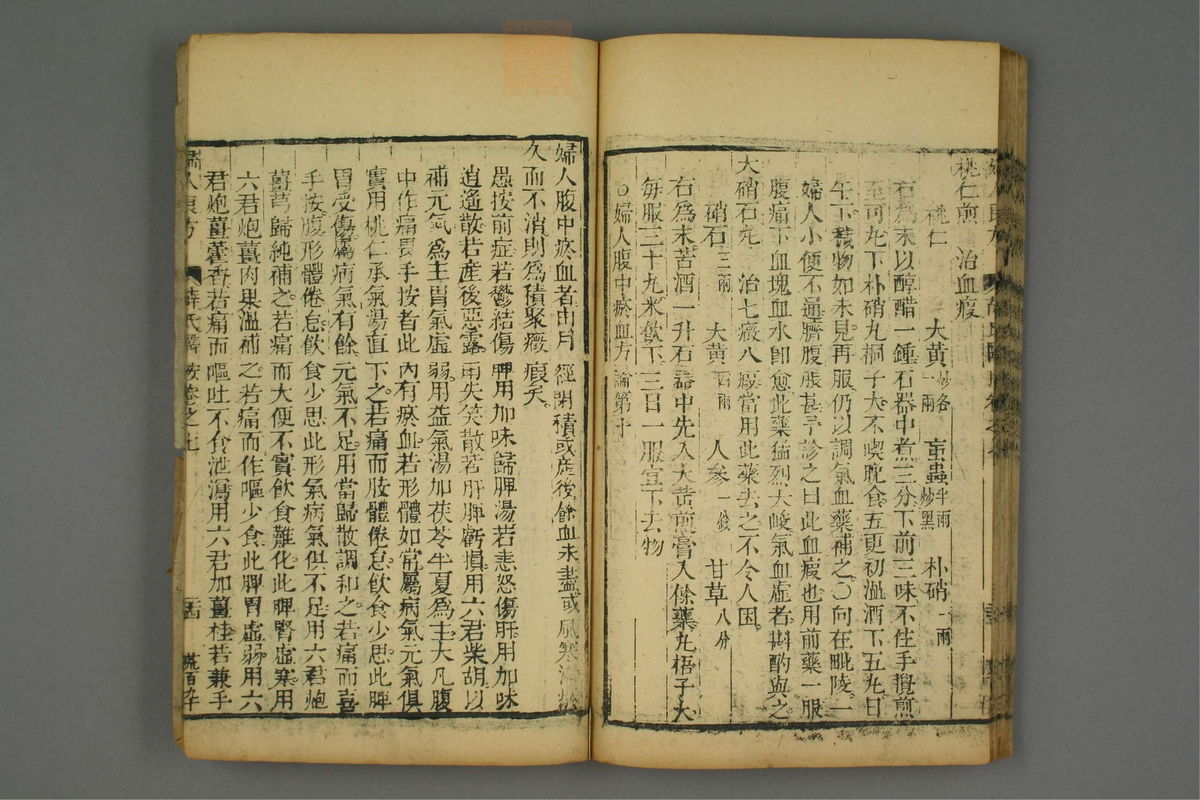 桃仁煎　治血瘕
桃仁　大黃炒各一兩　䖟蟲半兩炒黑　朴硝一兩
右為末以醇醋一鍾石器中煮三分下前三味不住手攪煎
至可丸下朴硝丸桐子大不喫晚食五更初溫酒下五丸日
午下穢物如未見再服仍以調氣血藥補之○向在毗陵一
婦人小便不通臍腹脹甚予診之曰此血瘕也用前藥一服
腹痛下血塊血水即愈此藥猛烈大峻氣血虛者斟酌與之
大硝石丸　治七癥八瘕當用此藥去之不令人困
硝石三兩　大黃四兩　人參一錢　甘草八分
右為末苦酒一升石器中先入大黃煎膏入餘藥丸梧子大
每服三十丸米飲下三日一服宜下去物
○婦人腹中瘀血方論第十
婦人腹中瘀血者由月經閉積或產後餘血未盡或風寒滯瘀
久而不消則為積聚癥瘕矣
愚按前症若鬱結傷脾用加味歸脾湯若恚怒傷肝用加味
逍遙散若產後惡露用失笑散若肝脾虧損用六君柴胡以
補元氣為主胃氣虛弱用益氣湯加茯苓半夏為主大凡腹
中作痛畏手按者此內有瘀血若形體如常屬病氣元氣俱
實用桃仁承氣湯直下之若痛而肢體倦怠飲食少思此脾
胃受傷屬病氣有餘元氣不足用當歸散調和之若痛而喜
手按腹形體倦怠飲食少思此形氣病氣俱不足用六君炮
薑芎歸純補之若痛而大便不實飲食難化此脾腎虛寒用
六君炮薑肉果溫補之若痛而作嘔少食此脾胃虛弱用六
君炮薑藿香若痛而嘔吐不食泄瀉用六君加薑桂若兼手
婦人良方　薛氏醫按卷之七